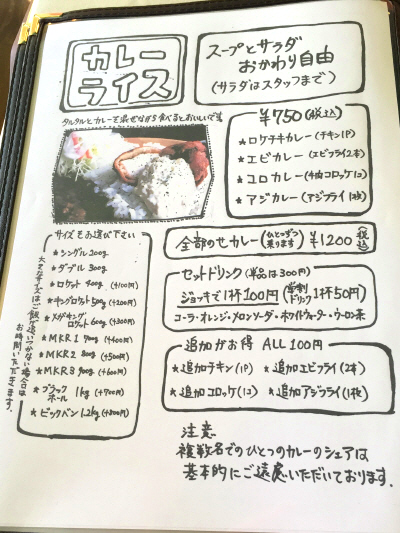 カレー
ライス
スープとサラダ
おかわり自由
(サラダはスタッフまで)
タルタルとカレーを混ぜながら食べるとおいしいです
¥750(税込)
★ロケチキカレー(チキン1P)
★エビカレー(エビフライ2本)
★コロカレー(牛肉コロッケ1コ)
★アジカレー(アジフライ1枚)
サイズをお選び下さい
★シングル200g
★ダブル300g
★ロケット400g(+100円)
★キングロケット500g(+200円)
★メガキングロケット600g(+300円)
★MKR1 700g(+400円)
★MKR2 800g(+500円)
★MKR3 900g(+600円)
★ブラックホール1kg(+700円)
★ビックバン1.2kg(+800円)
大きなサイズはご飯が追いつかない場合は
お時間いただきます。
全部のせカレー(ひとつずつ乗ります)¥1200税込
セットドリンク(単品は300円)
ジョッキで1杯100円(学割ドリンク1杯50円)
コーラ・オレンジ・メロンソーダ・ホワイトウォーター・ウーロン茶
追加がお得 ALL 100円
★追加チキン(1P) ★追加エビフライ(2本)
★追加コロッケ(1コ) ★追加アジフライ(1枚)
注意
複数名でのひとつのカレーのシェアは
基本的にご遠慮いただいております。